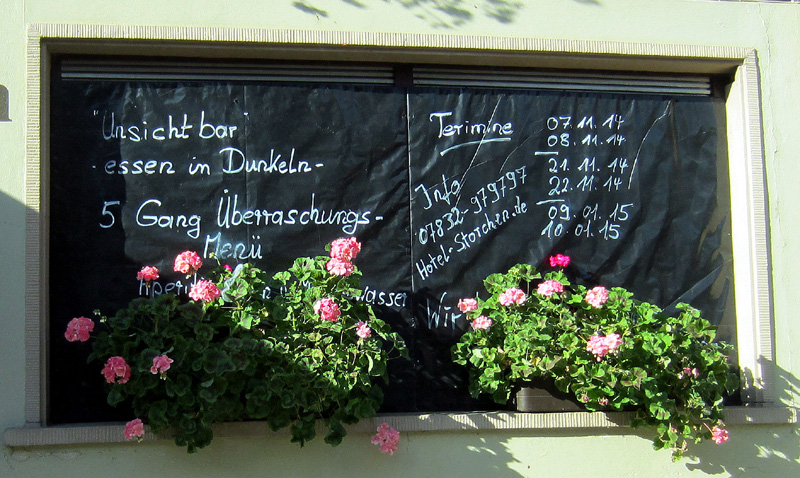 "Unsichtbar"
- essen in Dunkeln -
5 Gang Überraschungs-
Menü
Termine
07.11.14
08.11.14
21.11.14
22.11.14
09.01.15
10.01.15
Info
07832-979797
Hotel-Storchen.de
Wir